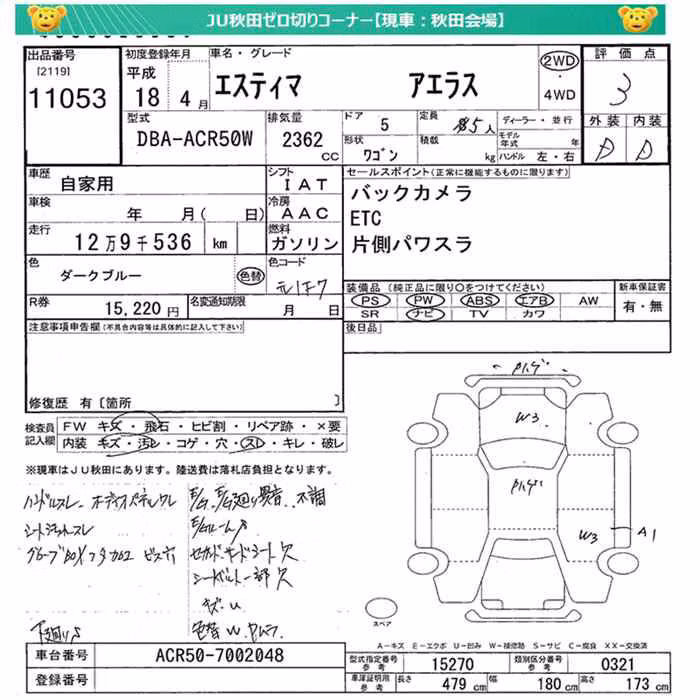 JU秋田ゼロ切りコーナー【現車：秋田会場】
出品番号
[2119]
11053
初度登録年月
平成
18 4月
車名・グレード
エスティマ アエラス
2WD
・
4WD
評価点
3
型式
DBA-ACR50W
排気量
2362
cc
ドア 5
定員 5人
形状 ワゴン
積載 kg
ディーラー・並行
モデル年式 年
ハンドル 左・右
外装 内装
D D
車歴
自家用
シフト
IAT
車検
年 月( 日)
冷房
AAC
走行
12万9千536 km
燃料
ガソリン
色
ダークブルー
色替
色コード
R券
15,220円
名変通知期限
月 日
セールスポイント(正常に機能するものに限ります)
バックカメラ
ETC
片側パワスラ
装備品(純正品に限り○をつけてください)
PS PW ABS エアB AW
SR ナビ TV カワ
新車保証書
有・無
後日品
注意事項申告欄(不具合内容等は具体的に記入して下さい)
修復歴 有〔箇所 〕
検査員
記入欄
FW キズ・飛石・ヒビ割・リペア跡・×要
内装 キズ・汚レ・コゲ・穴・スレ・キレ・破レ
※現車はJU秋田にあります。陸送費は落札店負担となります。
ハンドルスレ
E/G
不調
シート汚れスレ
欠
シートベルト一部欠
キズ・U
色替
下廻りS
W3
W3
A1
スペア
A－キズ E－エクボ U－凹み W－補修跡 S－サビ C－腐食 XX－交換済
車台番号
ACR50-7002048
登録番号
型式指定番号
参考
15270
類別区分番号
参考
0321
車庫証明用
参考
長さ 479cm
幅 180cm
高さ 173cm